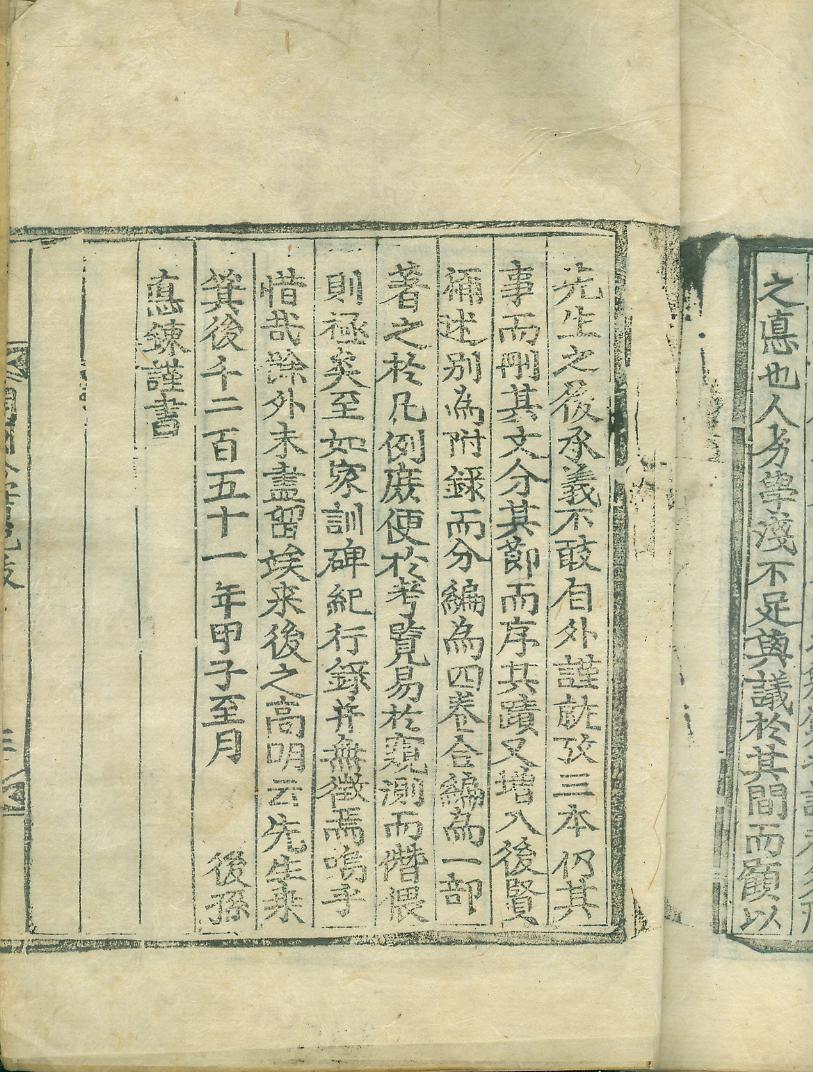 之悳也人劣學淺不足與議於其間而顧以
先生之後承義不敢自外謹就攷三本仍其
事而刪其文分其節而序其蹟又增入後賢
稱述別為附錄而分編為四卷合編為一部
著之於凡例庶便於考覽易於窺測而僭偎
則極矣至如家訓碑紀行錄并無徵焉嗚乎
惜哉餘外未盡留竢来後之高明云先生来
箕後千二百五十一年甲子至月 後孫
悳鍊謹書